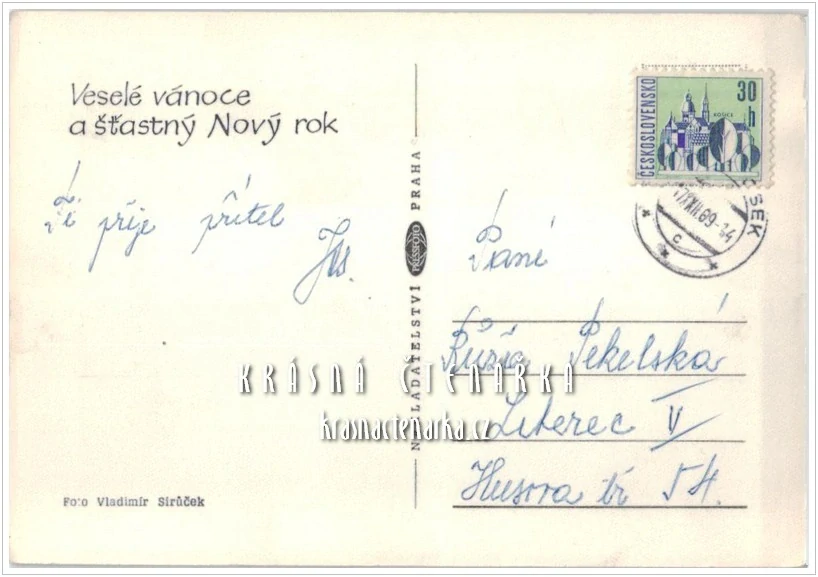 Veselé vánoce
a šťastný Nový rok
Ti přeje přítel
ČESKOSLOVENSKO
30 h
KOŠICE
17.XII.69-14
c
OSEK
NAKLADATELSTVÍ PRESSFOTO PRAHA
Paní
Růža Pekelská
Liberec V
Husova tř 54.
KRÁSNÁ ČTENÁRKA
krasnactenarka.cz
Foto Vladimír Sirůček